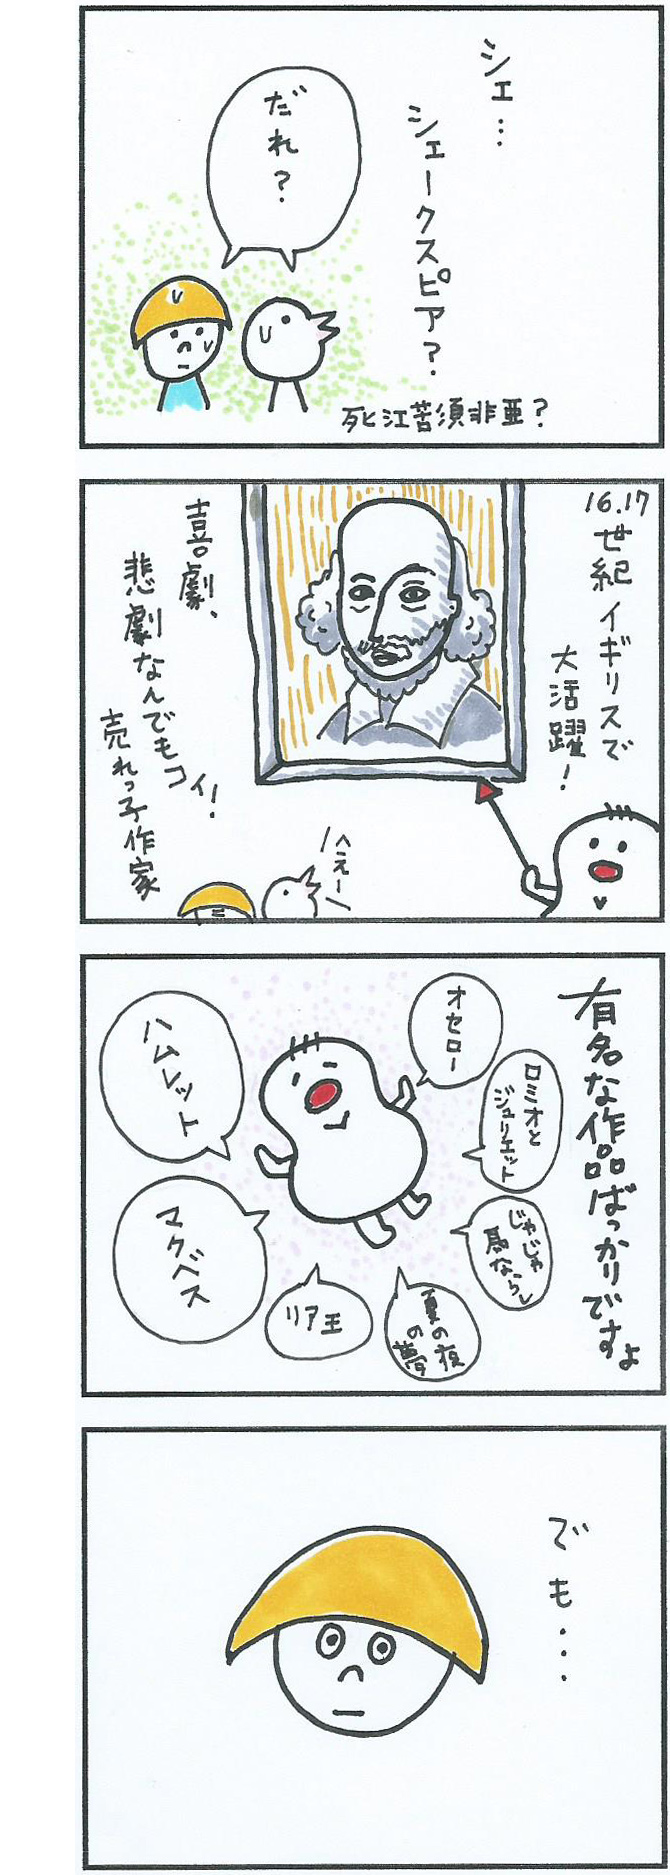 シェ…
シェークスピア?
だれ?
死江苦須非亜?
16.17
世紀イギリスで
大活躍!
喜劇、
悲劇なんでもコイ!
売れっ子作家
へえー
有名な作品ばっかりですよ
オセロー
ロミオと
ジュリエット
じゃじゃ
馬ならし
夏の夜
の夢
リア王
マクベス
ハムレット
でも…